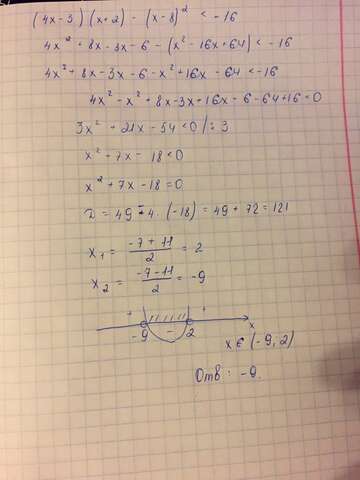 (4x-3)(x+2) - (x-8)² < -16
4x² + 8x - 3x - 6 - (x² - 16x + 64) < -16
4x² + 8x - 3x - 6 - x² + 16x - 64 < -16
4x² - x² + 8x - 3x + 16x - 6 - 64 + 16 < 0
3x² + 21x - 54 < 0 /: 3
x² + 7x - 18 < 0
x² + 7x - 18 = 0
D = 49 - 4 · (-18) = 49 + 72 = 121
x₁ = (-7 + 11)/2 = 2
x₂ = (-7 - 11)/2 = -9
+ - +
-9 2 x
x ∈ (-9, 2)
Отв: -9.